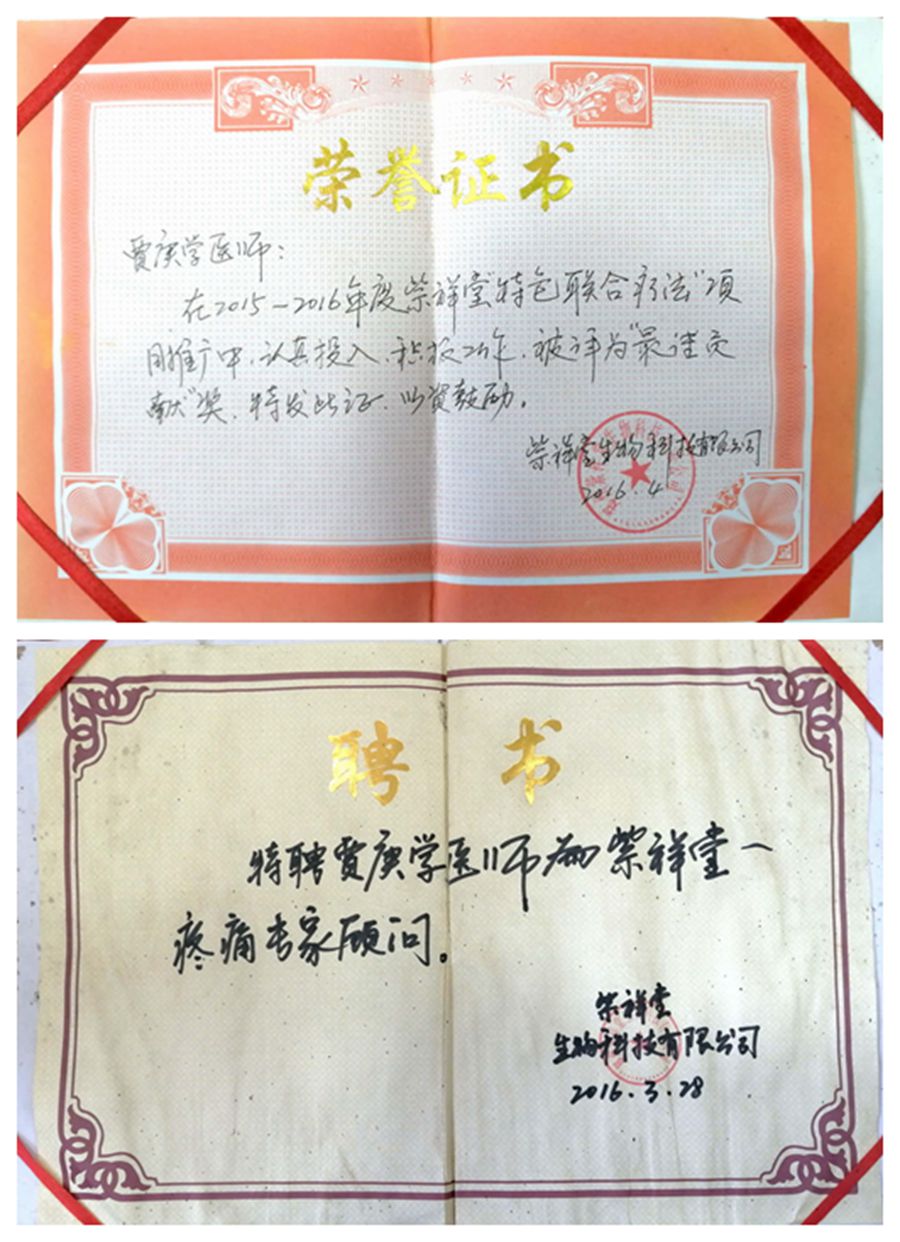 荣誉证书
贾庚学医师：
在2015-2016年度紫祥堂"特色联合疗法"项
目推广中，认真投入、积极工作，被评为"最佳贡
献"奖，特发此证，以资鼓励。
紫祥堂生物科技有限公司
2016.4
聘 书
特聘贾庚学医师为紫祥堂一
疼痛专家顾问。
紫祥堂
生物科技有限公司
2016.3.28